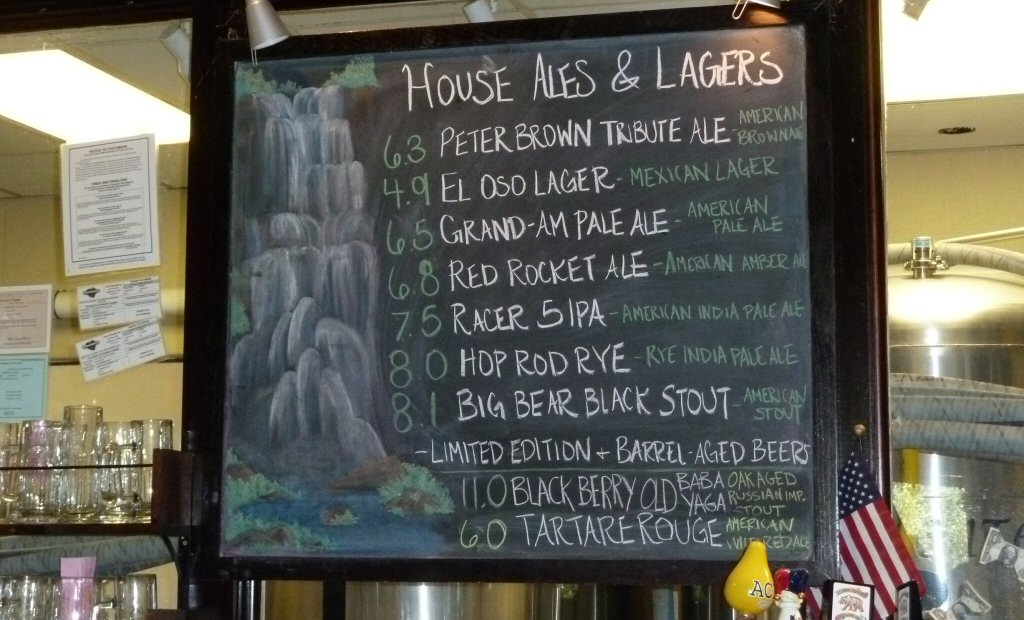 HOUSE ALES & LAGERS
6.3 PETER BROWN TRIBUTE ALE AMERICAN BROWN ALE
4.9 EL OSO LAGER - MEXICAN LAGER
6.5 GRAND-AM PALE ALE - AMERICAN PALE ALE
6.8 RED ROCKET ALE - AMERICAN AMBER ALE
7.5 RACER 5 IPA - AMERICAN INDIA PALE ALE
8.0 HOP ROD RYE - RYE INDIA PALE ALE
8.1 BIG BEAR BLACK STOUT - AMERICAN STOUT
- LIMITED EDITION + BARREL-AGED BEERS
11.0 BLACK BERRY OLD BABA YAGA OAK AGED RUSSIAN IMP. STOUT
6.0 TARTARE ROUGE AMERICAN WILD RED ALE
NOTICE TO CUSTOMERS
AC